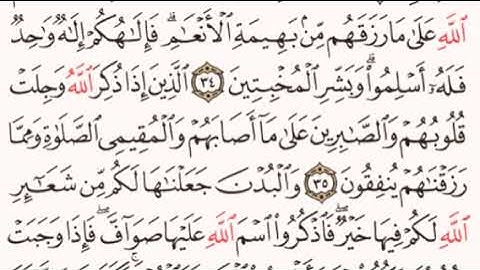 ٱللَّهِ عَلَىٰ مَا رَزَقَهُم مِّنۢ بَهِيمَةِ ٱلْأَنْعَٰمِ ۗ فَإِلَٰهُكُمْ إِلَٰهٌ وَٰحِدٌ
فَلَهُۥٓ أَسْلِمُوا۟ ۗ وَبَشِّرِ ٱلْمُخْبِتِينَ ٣٤ ٱلَّذِينَ إِذَا ذُكِرَ ٱللَّهُ وَجِلَتْ
قُلُوبُهُمْ وَٱلصَّٰبِرِينَ عَلَىٰ مَآ أَصَابَهُمْ وَٱلْمُقِيمِى ٱلصَّلَوٰةِ وَمِمَّا
رَزَقْنَٰهُمْ يُنفِقُونَ ٣٥ وَٱلْبُدْنَ جَعَلْنَٰهَا لَكُم مِّن شَعَٰٓئِرِ
ٱللَّهِ لَكُمْ فِيهَا خَيْرٌ ۖ فَٱذْكُرُوا۟ ٱسْمَ ٱللَّهِ عَلَيْهَا صَوَآفَّ ۖ فَإِذَا وَجَبَتْ